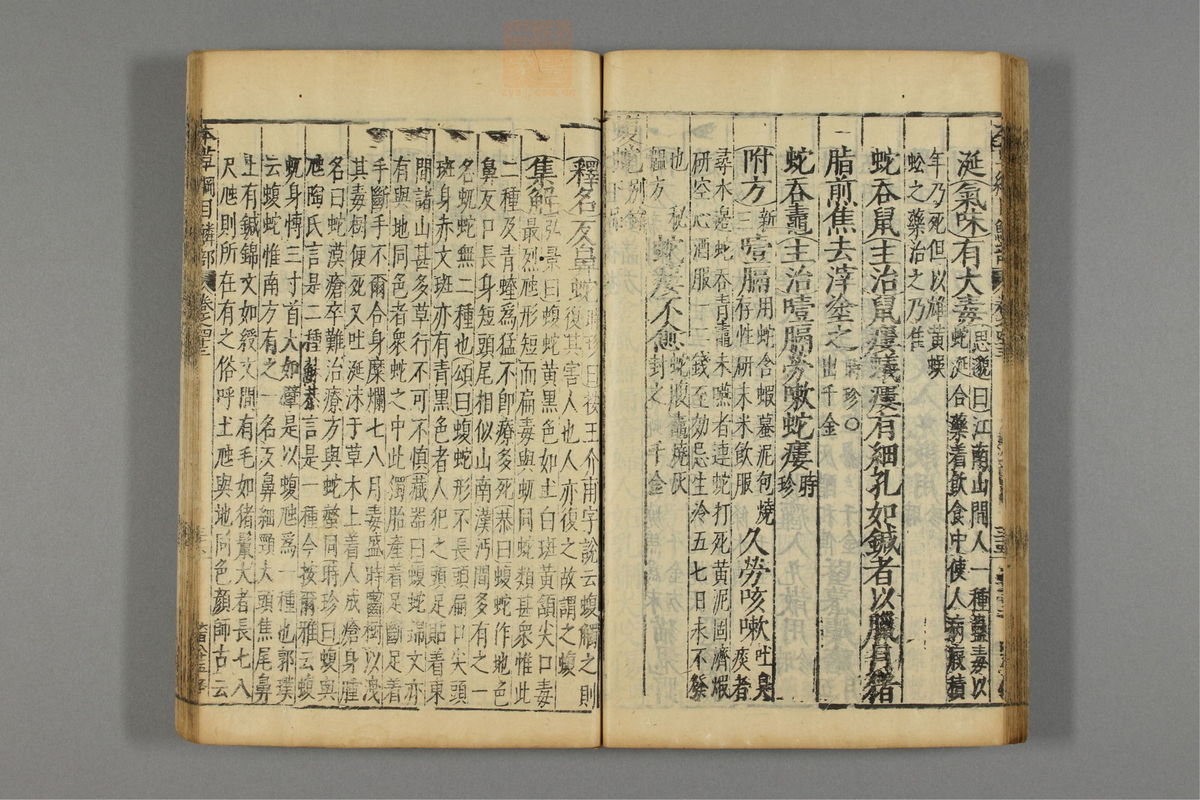 涎氣味有大毒思邈曰江南山間人一種蠱毒以蛇涎合藥着飲食中使人病瘕積
年乃死但以雄黃蜈蚣之藥治之乃佳
蛇吞鼠主治鼠瘻蟻瘻有細孔如鍼者以臘月豬
脂煎焦去滓塗之時珍○出千金
蛇吞鼃主治噎膈勞嗽蛇瘻時珍
附方新三噎膈用蛇含蝦蟇泥包燒存性研末米飲服久勞咳嗽吐臭痰者
尋水邊蛇吞青鼃未嚥者連蛇打死黃泥固濟煅
研空心酒服一二錢至効忌生冷五七日永不發
也秘韞方蛇瘻不愈蛇腹鼃燒灰封之千金
蝮蛇別錄下品
釋名反鼻蛇時珍曰按王介甫字說云蝮觸之則
復其害人也人亦復之故謂之蝮
集解弘景曰蝮蛇黃黑色如土白斑黃頷尖口毒
最烈虺形短而扁毒與蚖同蛇類甚衆惟此
二種及青蝰爲猛不即療多死恭曰蝮蛇作地色
鼻反口長身短頭尾相似山南漢沔間多有之一
名蚖蛇無二種也頌曰蝮蛇形不長頭扁口尖頭
斑身赤文斑亦有青黑色者人犯之頭足貼着東
間諸山甚多草行不可不慎藏器曰蝮蛇錦文亦
有與地同色者衆蛇之中此獨胎產着足斷足着
手斷手不爾合身糜爛七八月毒盛時齧樹以洩
其毒樹便死又吐涎沫于草木上着人成瘡身腫
名曰蛇漠瘡卒難治療方與蛇螫同時珍曰蝮與
虺陶氏言是二種蘇恭言是一種今按爾雅云蝮
虺身博三寸首大如擘是以蝮虺爲一種也郭璞
云蝮蛇惟南方有之一名反鼻細頸大頭焦尾鼻
上有鍼錦文如綬文間有毛如猪鬣大者長七八
尺虺則所在有之俗呼土虺與地同色顏師古云
本草綱目鱗部
卷之四十三